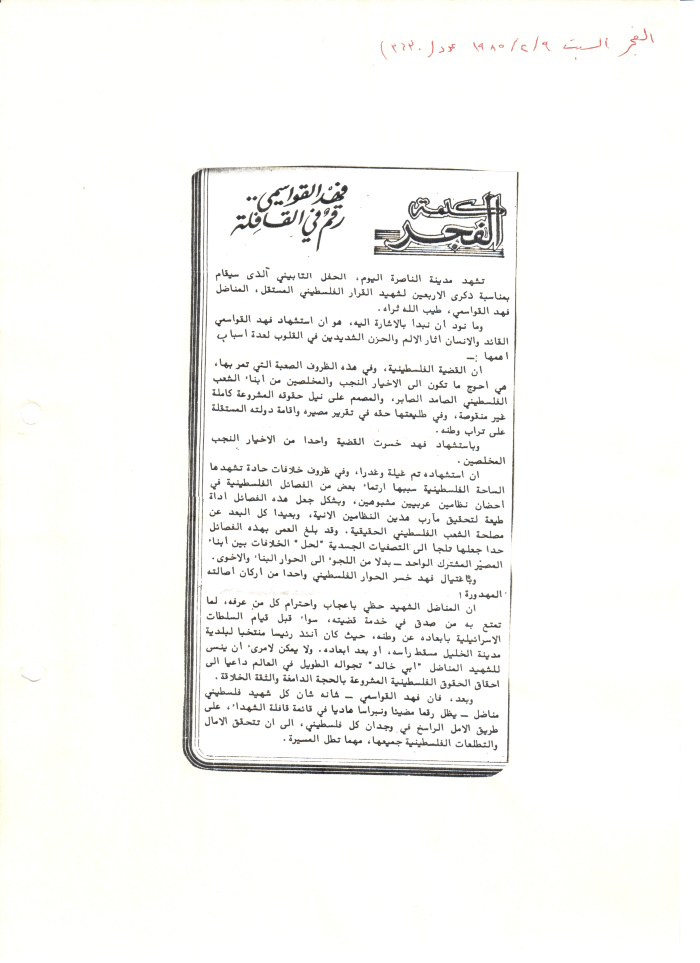 الفجر السبت ١٩٨٥/٢/٩ عدد (٣٦٣٠)
كلمة الفجر
فهد القواسمي..
رقم في القافلة
تشهد مدينة الناصرة اليوم، الحفل التابيني الذى سيقام
بمناسبة ذكرى الاربعين لشهيد القرار الفلسطيني المستقل، المناضل
فهد القواسمي، طيب الله ثراه.
وما نود ان نبدا بالاشارة اليه، هو ان استشهاد فهد القواسمي
القائد والانسان اثار الالم والحزن الشديدين في القلوب لعدة اسباب
اهمها :ــ
ان القضية الفلسطينية، وفي هذه الظروف الصعبة التي تمر بها،
هي احوج ما تكون الى الاخيار النجب والمخلصين من ابناء الشعب
الفلسطيني الصامد الصابر، والمصمم على نيل حقوقه المشروعة كاملة
غير منقوصة، وفي طليعتها حقه في تقرير مصيره واقامة دولته المستقلة
على تراب وطنه.
وباستشهاد فهد خسرت القضية واحدا من الاخيار النجب
المخلصين.
ان استشهاده تم غيلة وغدرا، وفي ظروف خلافات حادة تشهدها
الساحة الفلسطينية سببها ارتماء بعض من الفصائل الفلسطينية في
احضان نظامين عربيين مشبوهين، وبشكل جعل هذه الفصائل اداة
طيعة لتحقيق مآرب هذين النظامين الانية، وبعيدا كل البعد عن
مصلحة الشعب الفلسطيني الحقيقية. وقد بلغ العمى بهذه الفصائل
حدا جعلها تلجا الى التصفيات الجسدية "لحل" الخلافات بين ابناء
المصير المشترك الواحد ــ بدلا من اللجوء الى الحوار البناء والاخوى.
وباغتيال فهد خسر الحوار الفلسطيني واحدا من اركان اصالته
المهدورة !
ان المناضل الشهيد حظي باعجاب واحترام كل من عرفه، لما
تمتع به من صدق في خدمة قضيته، سواء قبل قيام السلطات
الاسرائيلية بابعاده عن وطنه، حيث كان آنئذ رئيسا منتخبا لبلدية
مدينة الخليل مسقط راسه، او بعد ابعاده. ولا يمكن لامرىء ان ينسى
للشهيد المناضل "ابي خالد" تجواله الطويل في العالم داعيا الى
احقاق الحقوق الفلسطينية المشروعة بالحجة الدامغة والثقة الخلاقة.
وبعد، فان فهد القواسمي ــ شانه شان كل شهيد فلسطيني
مناضل ــ يظل رقما مضيئا ونبراسا هاديا في قائمة قافلة الشهداء، على
طريق الامل الراسخ في وجدان كل فلسطيني، الى ان تتحقق الامال
والتطلعات الفلسطينية جميعها، مهما تطل المسيرة.